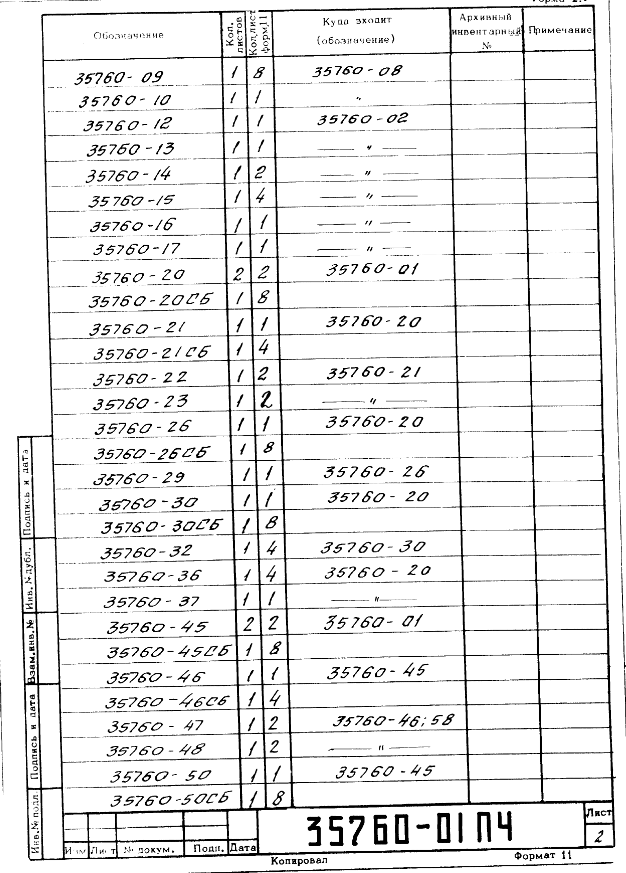 Форма 2.
Обозначение Кол. листов Кол.лист форм.11 Куда входит (обозначение) Архивный инвентарный № Примечание
35760-09 1 8 35760-08
35760-10 1 1 "
35760-12 1 1 35760-02
35760-13 1 1 — " —
35760-14 1 2 — " —
35760-15 1 4 — " —
35760-16 1 1 — " —
35760-17 1 1 — " —
35760-20 2 2 35760-01
35760-20СБ 1 8
35760-21 1 1 35760-20
35760-21СБ 1 4
35760-22 1 2 35760-21
35760-23 1 2 — " —
35760-26 1 1 35760-20
35760-26СБ 1 8
35760-29 1 1 35760-26
35760-30 1 1 35760-20
35760-30СБ 1 8
35760-32 1 4 35760-30
35760-36 1 4 35760-20
35760-37 1 1 — " —
35760-45 2 2 35760-01
35760-45СБ 1 8
35760-46 1 1 35760-45
35760-46СБ 1 4
35760-47 1 2 35760-46; 58
35760-48 1 2 — " —
35760-50 1 1 35760-45
35760-50СБ 1 8
Подпись и дата
Инв.№дубл.
Взам.инв.№
Подпись и дата
Инв.№подл.
Изм Лист № докум. Подп. Дата
35760-01ПЧ
Лист
2
Копировал
Формат 11